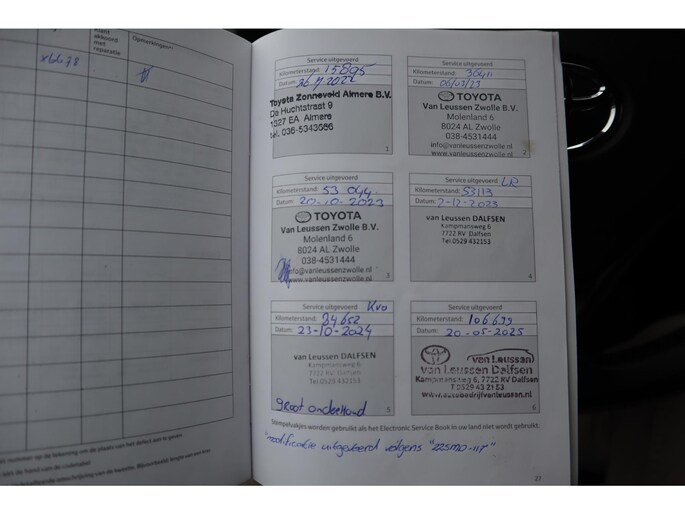 klant
akkoord
met
reparatie
Opmerkingen
Service uitgevoerd
Kilometerstand: 15895
Datum: 26.7.2022
Toyota Zonneveld Almere B.V.
De Huchtstraat 9
1327 EA Almere
tel. 036-5343666
1
Service uitgevoerd
Kilometerstand: 36411
Datum: 06/03/23
TOYOTA
Van Leussen Zwolle B.V.
Molenland 6
8024 AL Zwolle
038-4531444
info@vanleussenzwolle.nl
www.vanleussenzwolle.nl
2
Service uitgevoerd
Kilometerstand: 53 044
Datum: 20.10.2023
TOYOTA
Van Leussen Zwolle B.V.
Molenland 6
8024 AL Zwolle
038-4531444
info@vanleussenzwolle.nl
www.vanleussenzwolle.nl
3
Service uitgevoerd LR
Kilometerstand: 53113
Datum: 2-12-2023
van Leussen DALFSEN
Kampmansweg 6
7722 RV Dalfsen
Tel.0529 432153
4
Service uitgevoerd Kvo
Kilometerstand: 84652
Datum: 23-10-2024
van Leussen DALFSEN
Kampmansweg 6
7722 RV Dalfsen
Tel.0529 432153
groot onderhoud
5
Service uitgevoerd
Kilometerstand: 106699
Datum: 20-05-2025
van Leussen
van Leussen Dalfsen
Kampmansweg 6, 7722 RV Dalfsen
T 0529 43 21 53
www.autobedrijfvanleussen.nl
6
Stempelvakjes worden gebruikt als het Electronic Service Book in uw land niet wordt gebruikt.
*modificatie uitgevoerd volgens "22SMD-117"
27